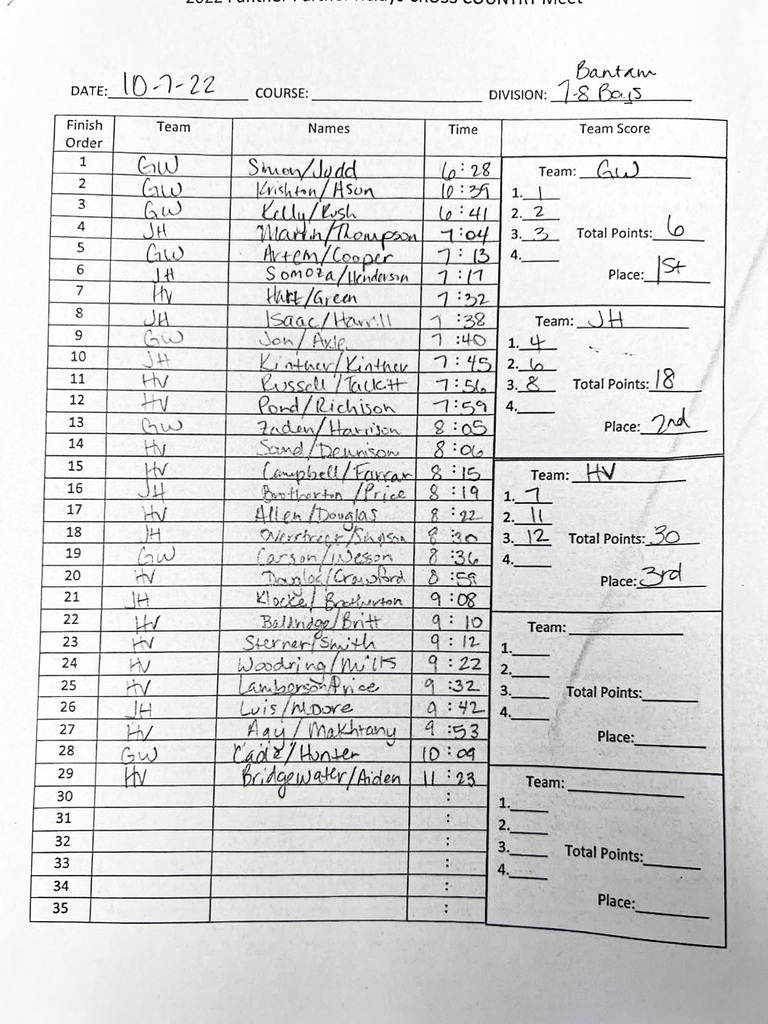 2022 Panther Partner Relays CROSS COUNTRY Meet
DATE: 10-7-22 COURSE: DIVISION: Bantam 7-8 Boys
Finish Order Team Names Time Team Score
1 GW Simon/Judd 6:28
2 GW Krishton/Ason 10:39
3 GW Kelly/Rush 6:41
4 JH Martin/Thompson 7:04
5 GW Artem/Cooper 7:13
6 JH Somoza/Henderson 7:17
7 HV Hart/Green 7:32
8 JH Isaac/Harrill 7:38
9 GW Jon/Axie 7:40
10 JH Kintner/Kintner 7:45
11 HV Russell/Tackitt 7:56
12 HV Pond/Richison 7:59
13 GW Zaden/Harrison 8:05
14 HV Sand/Dennison 8:06
15 HV Campbell/Farrar 8:15
16 JH Brotherton/Price 8:19
17 HV Allen/Douglas 8:22
18 JH Overstreet/Simpson 8:30
19 GW Carson/Wesson 8:36
20 HV Douglas/Crawford 8:59
21 JH Klocke/Brotherton 9:08
22 HV Baldridge/Britt 9:10
23 HV Sterner/Smith 9:12
24 HV Woodring/Milts 9:22
25 HV Lamberson/Price 9:32
26 JH Luis/Moore 9:42
27 HV Agy/Makhtany 9:53
28 GW Cade/Hunter 10:09
29 HV Bridgewater/Aiden 11:23
30 :
31 :
32 :
33 :
34 :
35 :
Team: GW
1. 1
2. 2
3. 3 Total Points: 6
4.
Place: 1st
Team: JH
1. 4
2. 6
3. 8 Total Points: 18
4.
Place: 2nd
Team: HV
1. 7
2. 11
3. 12 Total Points: 30
4.
Place: 3rd
Team:
1.
2.
3. Total Points:
4.
Place:
Team:
1.
2.
3. Total Points:
4.
Place: